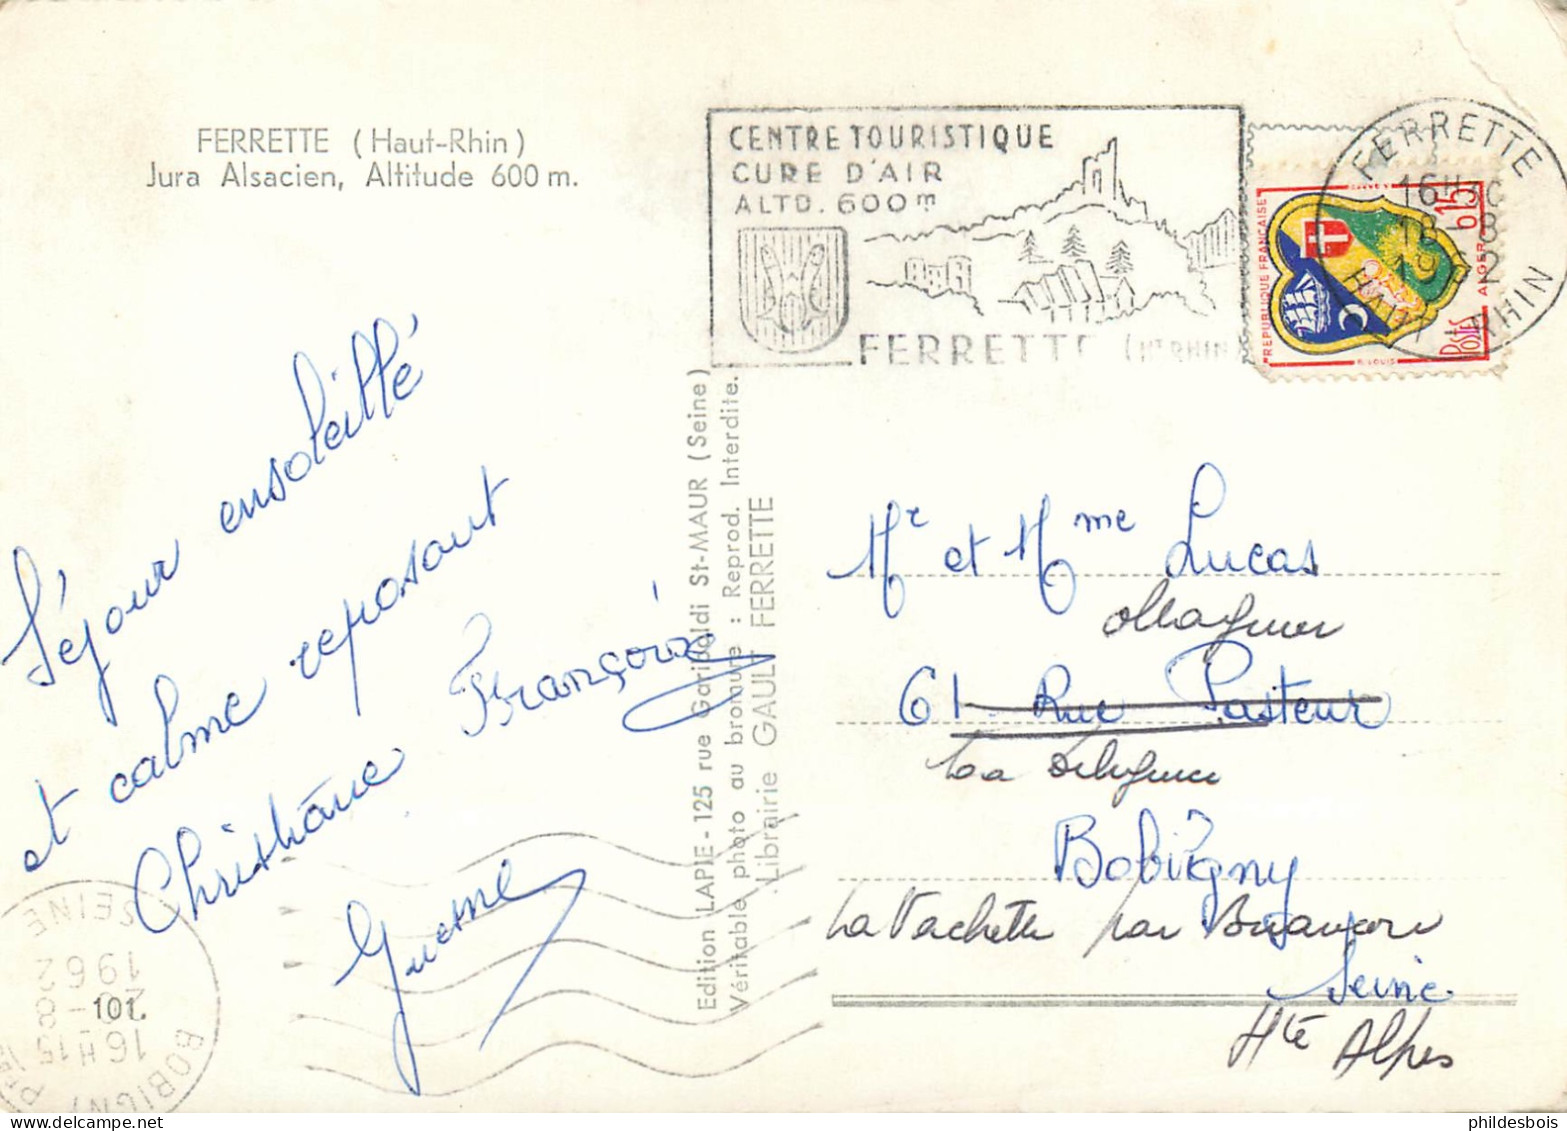 FERRETTE (Haut-Rhin)
Jura Alsacien, Altitude 600 m.
CENTRE TOURISTIQUE
CURE D'AIR
ALTD. 600m
FERRETTE (Ht RHIN
FERRETTE
16H30
18 -8
1962
HAUT RHIN
REPUBLIQUE FRANÇAISE
0,15
ALGER
Postes
R. LOUIS
Séjour ensoleillé
et calme reposant
Christiane Françoise
Guesne
Edition LAPIE - 125 rue Garibaldi St-MAUR (Seine)
Véritable photo au bromure : Reprod. Interdite.
Librairie GAULT FERRETTE
Mr et Mme Lucas
61 Rue Pasteur
La
Bobigny
La Vachette par Briançon
Seine
Hte Alpes
101
BOBIGNY
16H15
-8
1962
SEINE
phildesbois